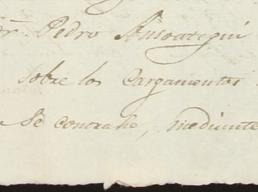 Pedro Ansoategui
sobre los Cargamentos
Se contrate, mediante